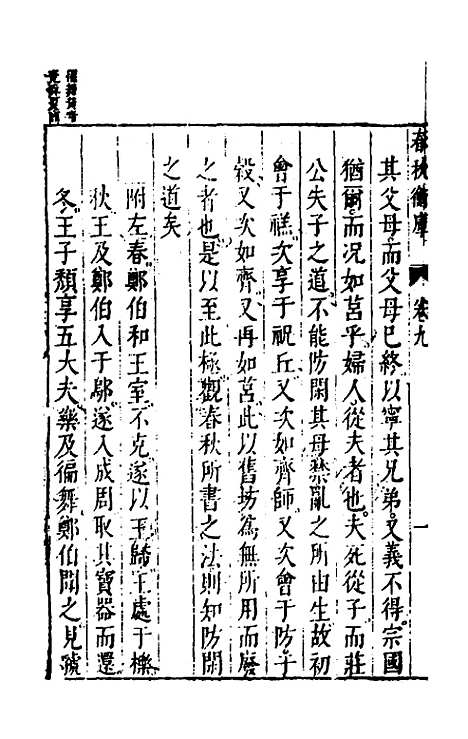 春秋衡庫 卷九 一
其父母而父母已終以寧其兄弟又義不得宗國
猶爾而况如莒乎婦人從夫者也夫死從子而莊
公失子之道不能防閑其母禁亂之所由生故初
會于禚次享于祝丘又次如齊師又次會于防于
榖又次如齊又再如莒此以舊坊為無所用而廢
之者也是以至此極觀春秋所書之法則知防閑
之道矣
附左春鄭伯和王室不克遂以王歸王處于櫟
秋王及鄭伯入于鄔遂入成周取其寶器而還
冬王子頹享五大夫樂及徧舞鄭伯聞之見虢